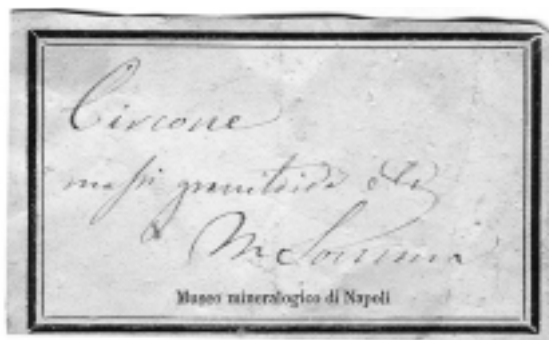 Circone
massi granitoidi di
M. Somma
Museo mineralogico di Napoli